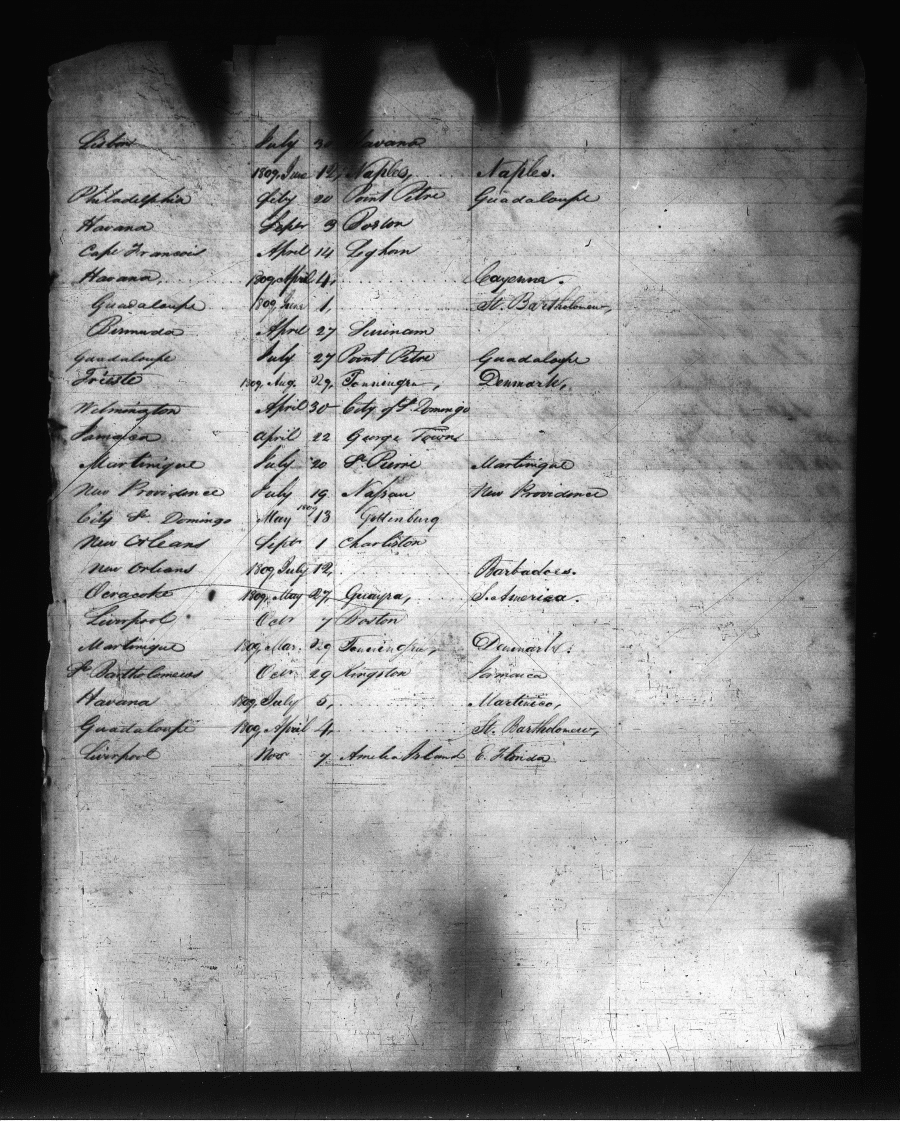 Lisbon July 30 Havana
1809. June 12, Naples, ..... Naples.
Philadelphia July 20 Point Petre Guadaloupe
Havana Sepr 3 Boston
Cape Francois April 14 Leghorn
Havana, ..... 1809 April 4, ..... Cayenna.
Guadaloupe 1809 June 1, ..... St. Bartholomew,
Bermuda April 27 Surinam
Guadaloupe July 27 Point Petre Guadaloupe
Trieste 1809. Aug. 29, Tonningen, Denmark,
Wilmington April 30 City of St Domingo
Jamaica April 22 George Town
Martinique July 20 St Pierre Martinique
New Providence July 19 Nassau New Providence
City St Domingo May 1809 13 Gottenburg
New Orleans Sepr 1 Charliston
New Orleans 1809 July 12, ..... Barbadoes.
Ocracoke 1809. May 27, Guayra, S. America.
Liverpool Octr 7 Boston
Martinique 1809. Mar. 29 Tonningen, Denmark.
St Bartholomews Octr 29 Kingston Jamaica
Havana 1809 July 5, ..... Martinico,
Guadaloupe 1809. April 4, ..... St. Bartholomew,
Liverpool Novr 7 Amelia Island E. Florida